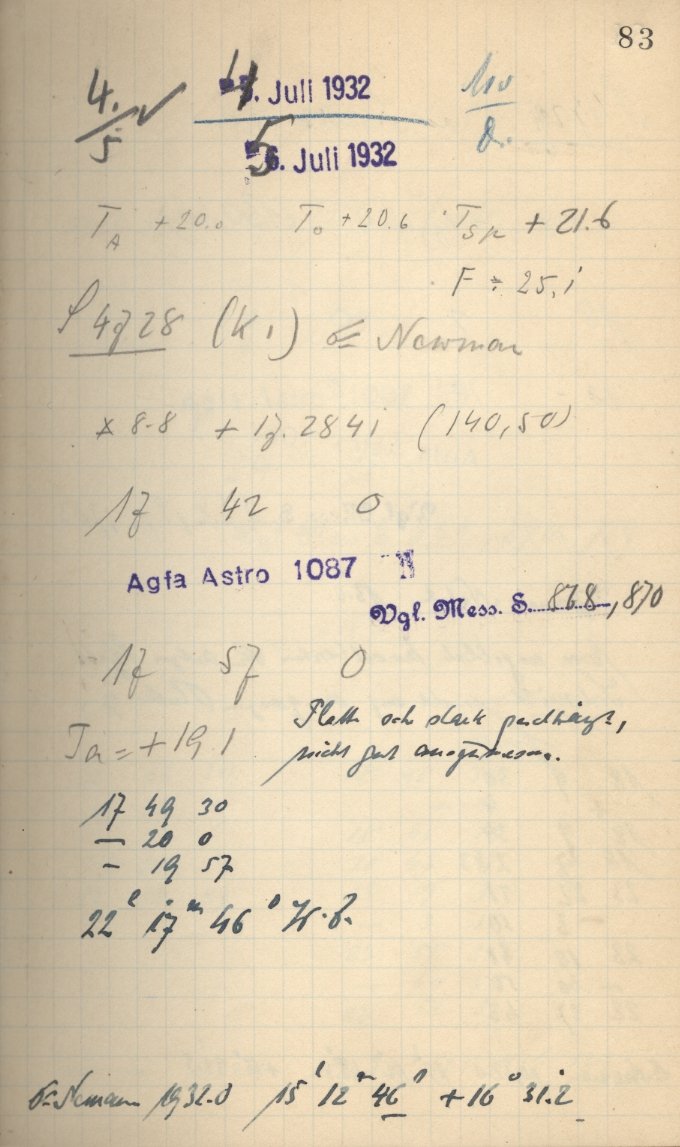 83
4./5 ✓ 4. Juli 1932
5 6. Juli 1932
T_A +20.0 T_o +20.6 T_Sp + 21.6
F ÷ 25,1
4728 (K1) Newman
* 8.8 + 17.2841 (140,50)
17 42 0
Agfa Astro 1087
Vgl. Mess. S. 868, 870
17 57 0
Ta = +19.1
nicht gut
17 49 30
— 20 0
— 19 57
22 17 46
1932.0 15 12 46 +16° 31.2